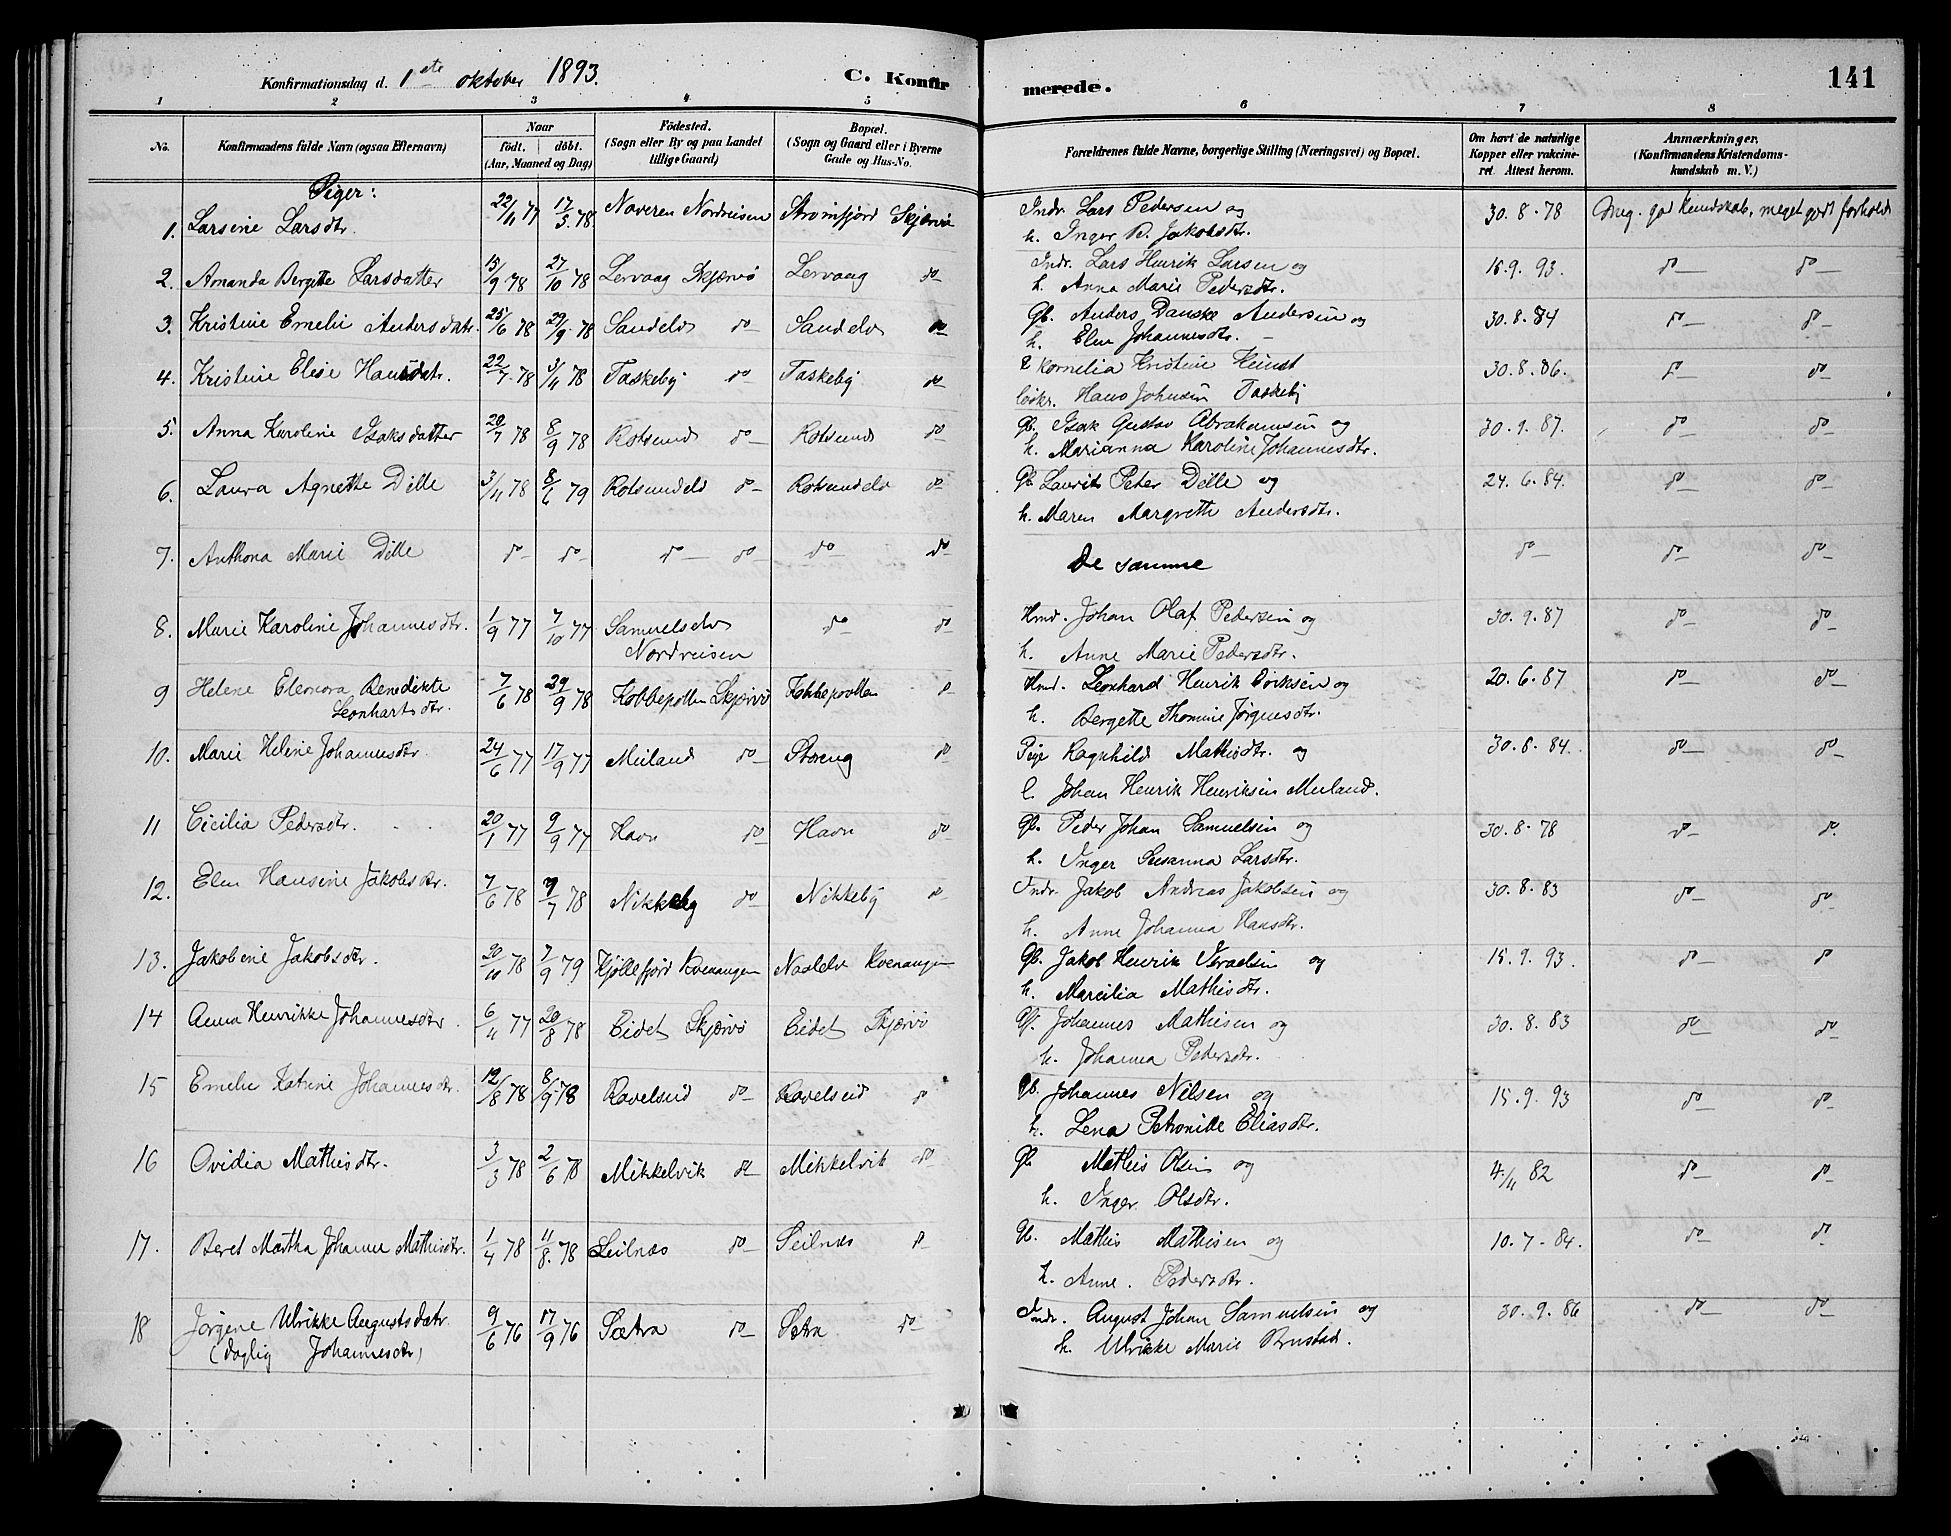 Konfirmationsdag d. 1ste oktober 1893. C. Konfirmerede. 141
1 2 3 4 5 6 7 8
No. Konfirmandens fulde Navn (ogsaa Efternavn) Naar født. døbt. (Aar, Maaned og Dag) Fødested. (Sogn eller By og paa Landet tillige Gaard) Bopæl. (Sogn og Gaard eller i Byerne Gade og Hus-No. Forældrenes fulde Navne, borgerlige Stilling (Næringsvei) og Bopæl. Om havt de naturlige Kopper eller vakcineret. Attest herom. Anmærkninger. (Konfirmandens Kristendomskundskab m. V.)
Piger:
1. Larsine Larsdtr. 22/11 77 17/3. 78. Naveren Nordreisen Stromfjord Skjærvö Indr. Lars Pedersen og 30. 8. 78 Meg. god Kundskab, meget godt forhold
h. Inger B. Jakobsdtr.
2. Amanda Bergitte Larsdatter 15/9 78 27/10 78 Lervaag Skjærvö Lervaag do Indr. Lars Henrik Larsen og 15. 9. 93. do do
h. Anna Marie Pedersdtr.
3. Kristine Emelie Andersdatr. 25/6 78 29/9. 78 Sandelv do Sandelv do Gb. Anders Danske Andersen og 30. 8. 84 do do
h. Elen Johannesdtr.
4. Kristine Elise Hansdtr. 22/7. 78 3/11 78 Taskeby do Taskeby do Kornelia Kristine 30. 8. 86. do do
löskr. Hans Johnsen Taskeby
5. Anna Karoline Isaksdatter 20/7 78 8/9 78 Rotsund do Rotsund do Gb. Isak Gustav Abrahamsen og 30. 9. 87. do do
h. Marianna Karoline Johannesdtr.
6. Laura Agnethe Dille 3/11 78 8/6 79 Rotsundelv do Rotsundelv do Gb. Laurits Peter Dille og 24. 6. 84. do do
h. Maren Margrethe Andersdtr.
7. Anthona Marie Dille do do do do do do De samme do do do
8. Marie Karoline Johannesdtr. 1/9 77 7/10 77 Samuelselv do do Hmd. Johan Olaf Pedersen og 30. 9. 87 do do
Nordreisen h. Anne Marie Pedersdtr.
9 Helene Eleonora Benedikte 7/6 78 29/9 78 Kobbepollen Skjærvö Kobbepollen do Hmd. Leonhard Henrik Eriksen og 20. 6. 87 do do
Leonhartsdtr. h. Bergette Thomine Jörgensdtr.
10. Marie Heline Johannesdtr. 24/6 77 17/9 77 Meiland do Storeng do Pige Ragnhild Mathisdtr. og 30. 8. 84. do do
l. Johan Henrik Henriksen Meiland.
11 Cicilia Pedersdtr. 20/1 77 9/9 77 Havn do Havn do Gb. Peder Johan Samuelsen og 30. 8. 78 do do
h. Inger Susanna Larsdtr.
12. Elen Hansine Jakobsdtr. 7/6 78 7/7 78 Nikkeby do Nikkeby do Indr. Jakob Andreas Jakobsen og 30. 8. 83 do do
h. Anne Johanna Hansdtr.
13. Jakobine Jakobsdtr. 20/10 78 7/9 79 Kjöllefjord Kvenangen Naalelv Kvenangen Gb. Jakob Henrik Israelsen og 15. 9. 93. do do
h. Marcilia Mathisdtr.
14 Anna Henrikke Johannesdtr. 6/11 77 20/8 78 Eidet Skjærvö Eidet Skjærvö Gb. Johannes Mathisen og 30. 8. 83 do do
h. Johanna Pedersdtr.
15 Emelie Katrine Johannesdtr. 12/8 78 8/9 78 Ravelseid do Ravelseid do Gb. Johannes Nilsen og 15. 9. 93 do do
h. Lena Petronille Eliasdtr.
16 Ovidia Mathisdtr. 3/3 78 2/6 78 Mikkelvik do Mikkelvik do Gb. Mathis Olsen og 4/11 82 do do
h. Inger Olsdtr.
17. Beret Martha Johanne Mathisdtr. 1/4 78 11/8. 78 Seilnæs do Seilnæs do Gb. Mathis Mathisen og 10. 7. 84. do do
h. Anne. Pedersdtr.
18 Jörgene Ulrikke Augustsdatr. 9/6 76 17/9 76 Sætra do Sætra do Indr. August Johan Samuelsen og 30. 9. 86 do do
(daglig Johannesdtr) h. Ulrikke Marie Brustad.